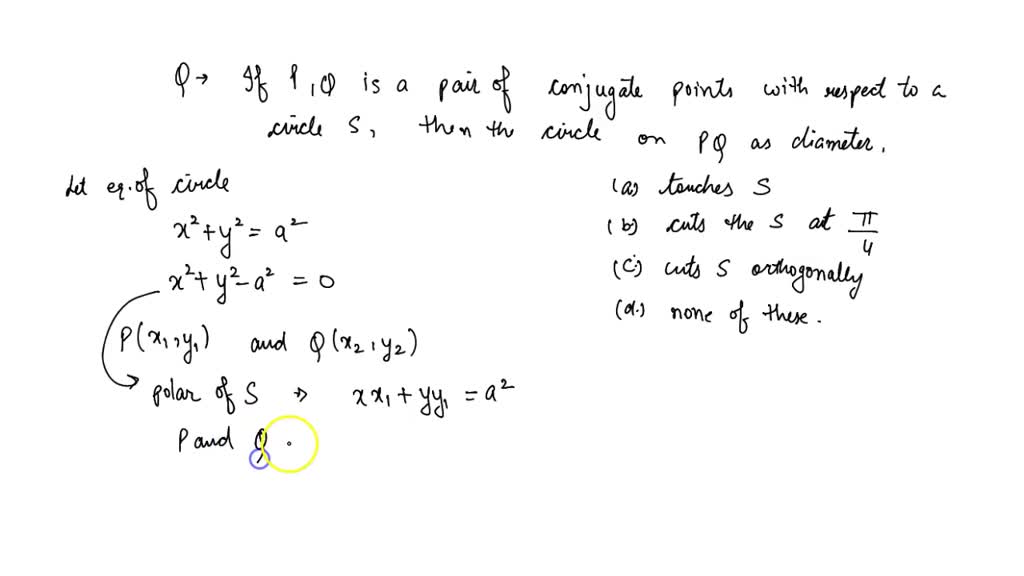 Q→ If P,Q is a pair of conjugate points with respect to a
circle S, then the circle on PQ as diameter.
Let eq. of circle
x² + y² = a²
x² + y² - a² = 0
P(x₁,y₁) and Q(x₂,y₂)
polar of S → xx₁ + yy₁ = a²
P and Q
(a) touches S
(b) cuts the S at π/4
(c) cuts S orthogonally
(d.) none of these.